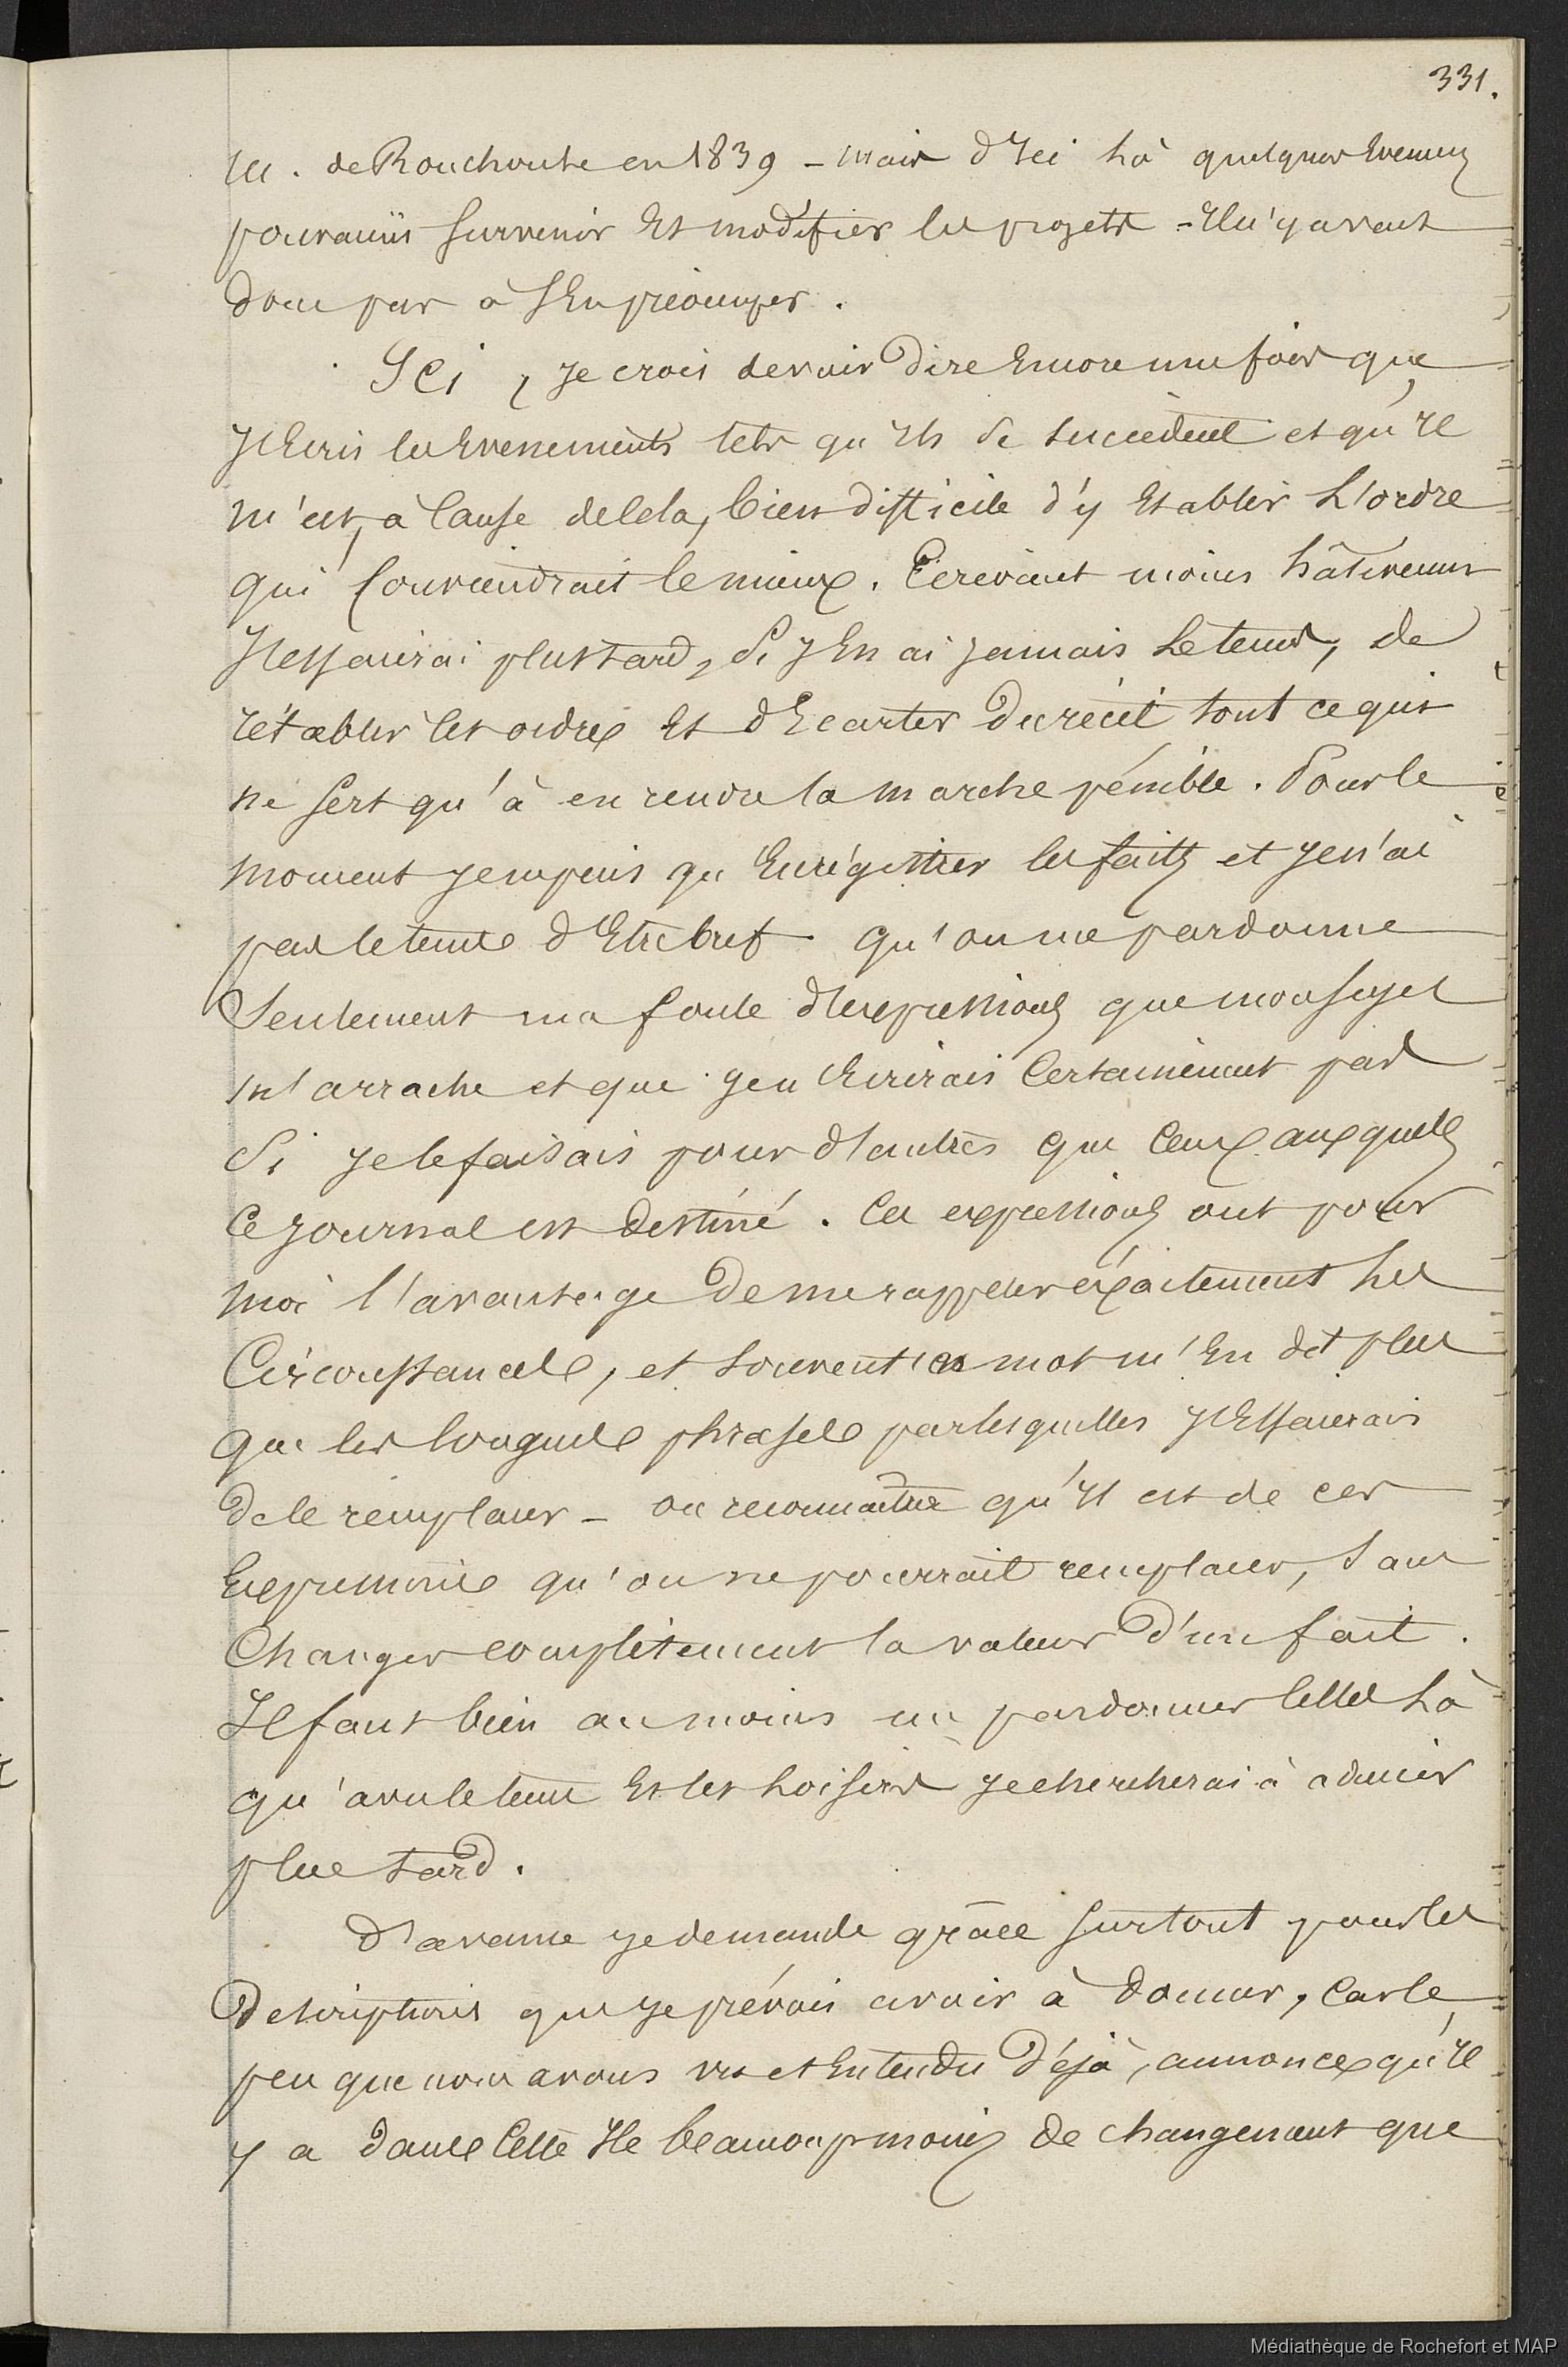 331.
M. de Rouchoute en 1839 - mais d'Ici là quelques Evenemens
pouvaient survenir Et modifier les projets - Il n'y avait
donc pas à s'En préoccuper.
Ici, je crois devoir dire Encore une fois que
j'Ecris les Evenements tels qu'Ils se succèdent et qu'Il
m'est, à Cause de Cela, bien difficile d'y Etablir L'ordre
qui Conviendrait le mieux. Ecrivant moins hâtivement
j'Essaierai plus tard, Si j'En ai jamais Le tems, de
rétablir cet ordre Et d'Ecarter du récit tout ce qui
ne sert qu'à en rendre la marche pénible. Pour le
moment je ne puis qu'Enrégistrer les faits et je n'ai
pas le tems d'Etre bref. qu'on me pardonne
Seulement ma foule d'expressions que mon sujet
m'arrache et que je n'Ecrirais Certainement pas
Si je le faisais pour d'autres que Ceux auxquels
Ce journal est destiné. Ces expressions ont pour
moi l'avantage de me rappeler exactement les
Circonstances, et souvent un mot m'En dit plus
que les longues phrases par lesquelles j'Essaierais
de le remplacer - on reconnaitra qu'Il est de ces
Expressions qu'on ne pourrait remplacer, Sans
Changer complètement la valeur d'un fait.
Il faut bien au moins me pardonner Celles là
qu'avec le tems Et les Loisirs je chercherai à adoucir
plus tard.
D'avance je demande grâce surtout pour les
Descriptions que je prévois avoir à donner, Car le
peu que nous avons vu et Entendu déjà, annonce qu'Il
y a dans Cette Ile beaucoup moins de changement que
Médiathèque de Rochefort et MAP